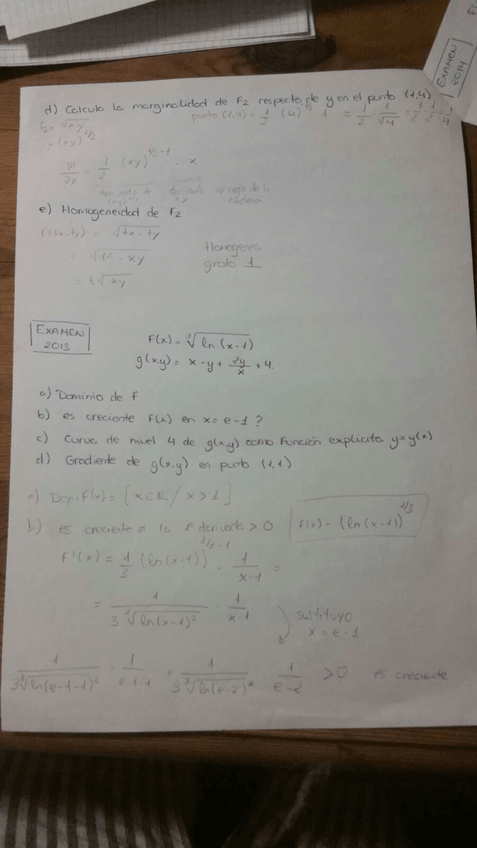 EXAMEN
2014
d) Calcula la marginalidad de F2 respecto de y en el punto (1,4)
F2 = √xy
punto (1,4) = 1/2 · (4)
= (xy)^1/2
= 1/2 (xy)^(1/2 - 1) · x
derivada de
derivada xy
regla de la cadena
e) Homogeneidad de F2
F(tx,ty) = √tx · ty
= √t² · xy
= t√xy
Homogenea
grado 1
EXAMEN
2013
F(x) = ³√ln (x-1)
g(x,y) = x - y + 2y/x + 4.
a) Dominio de f
b) es creciente F(x) en x = e-1 ?
c) Curva de nivel 4 de g(x,y) como función explicita y=y(x)
d) Gradiente de g(x,y) en punto (1,1)
a) Dom F(x) = { x∈R / x > 1 }
b) es creciente si la 1ª derivada > 0
F(x) = (ln (x-1))^1/3
F'(x) = 1/3 (ln (x-1))^(1/3 - 1) · 1/(x-1) =
= 1/(3 ³√ln(x-1)²) · 1/(x-1)
sustituyo
x = e-1
1/(3 ³√ln(e-1-1)²) · 1/(e-1-1) = 1/(3 ³√ln(e-2)²) · 1/(e-2) > 0 es creciente